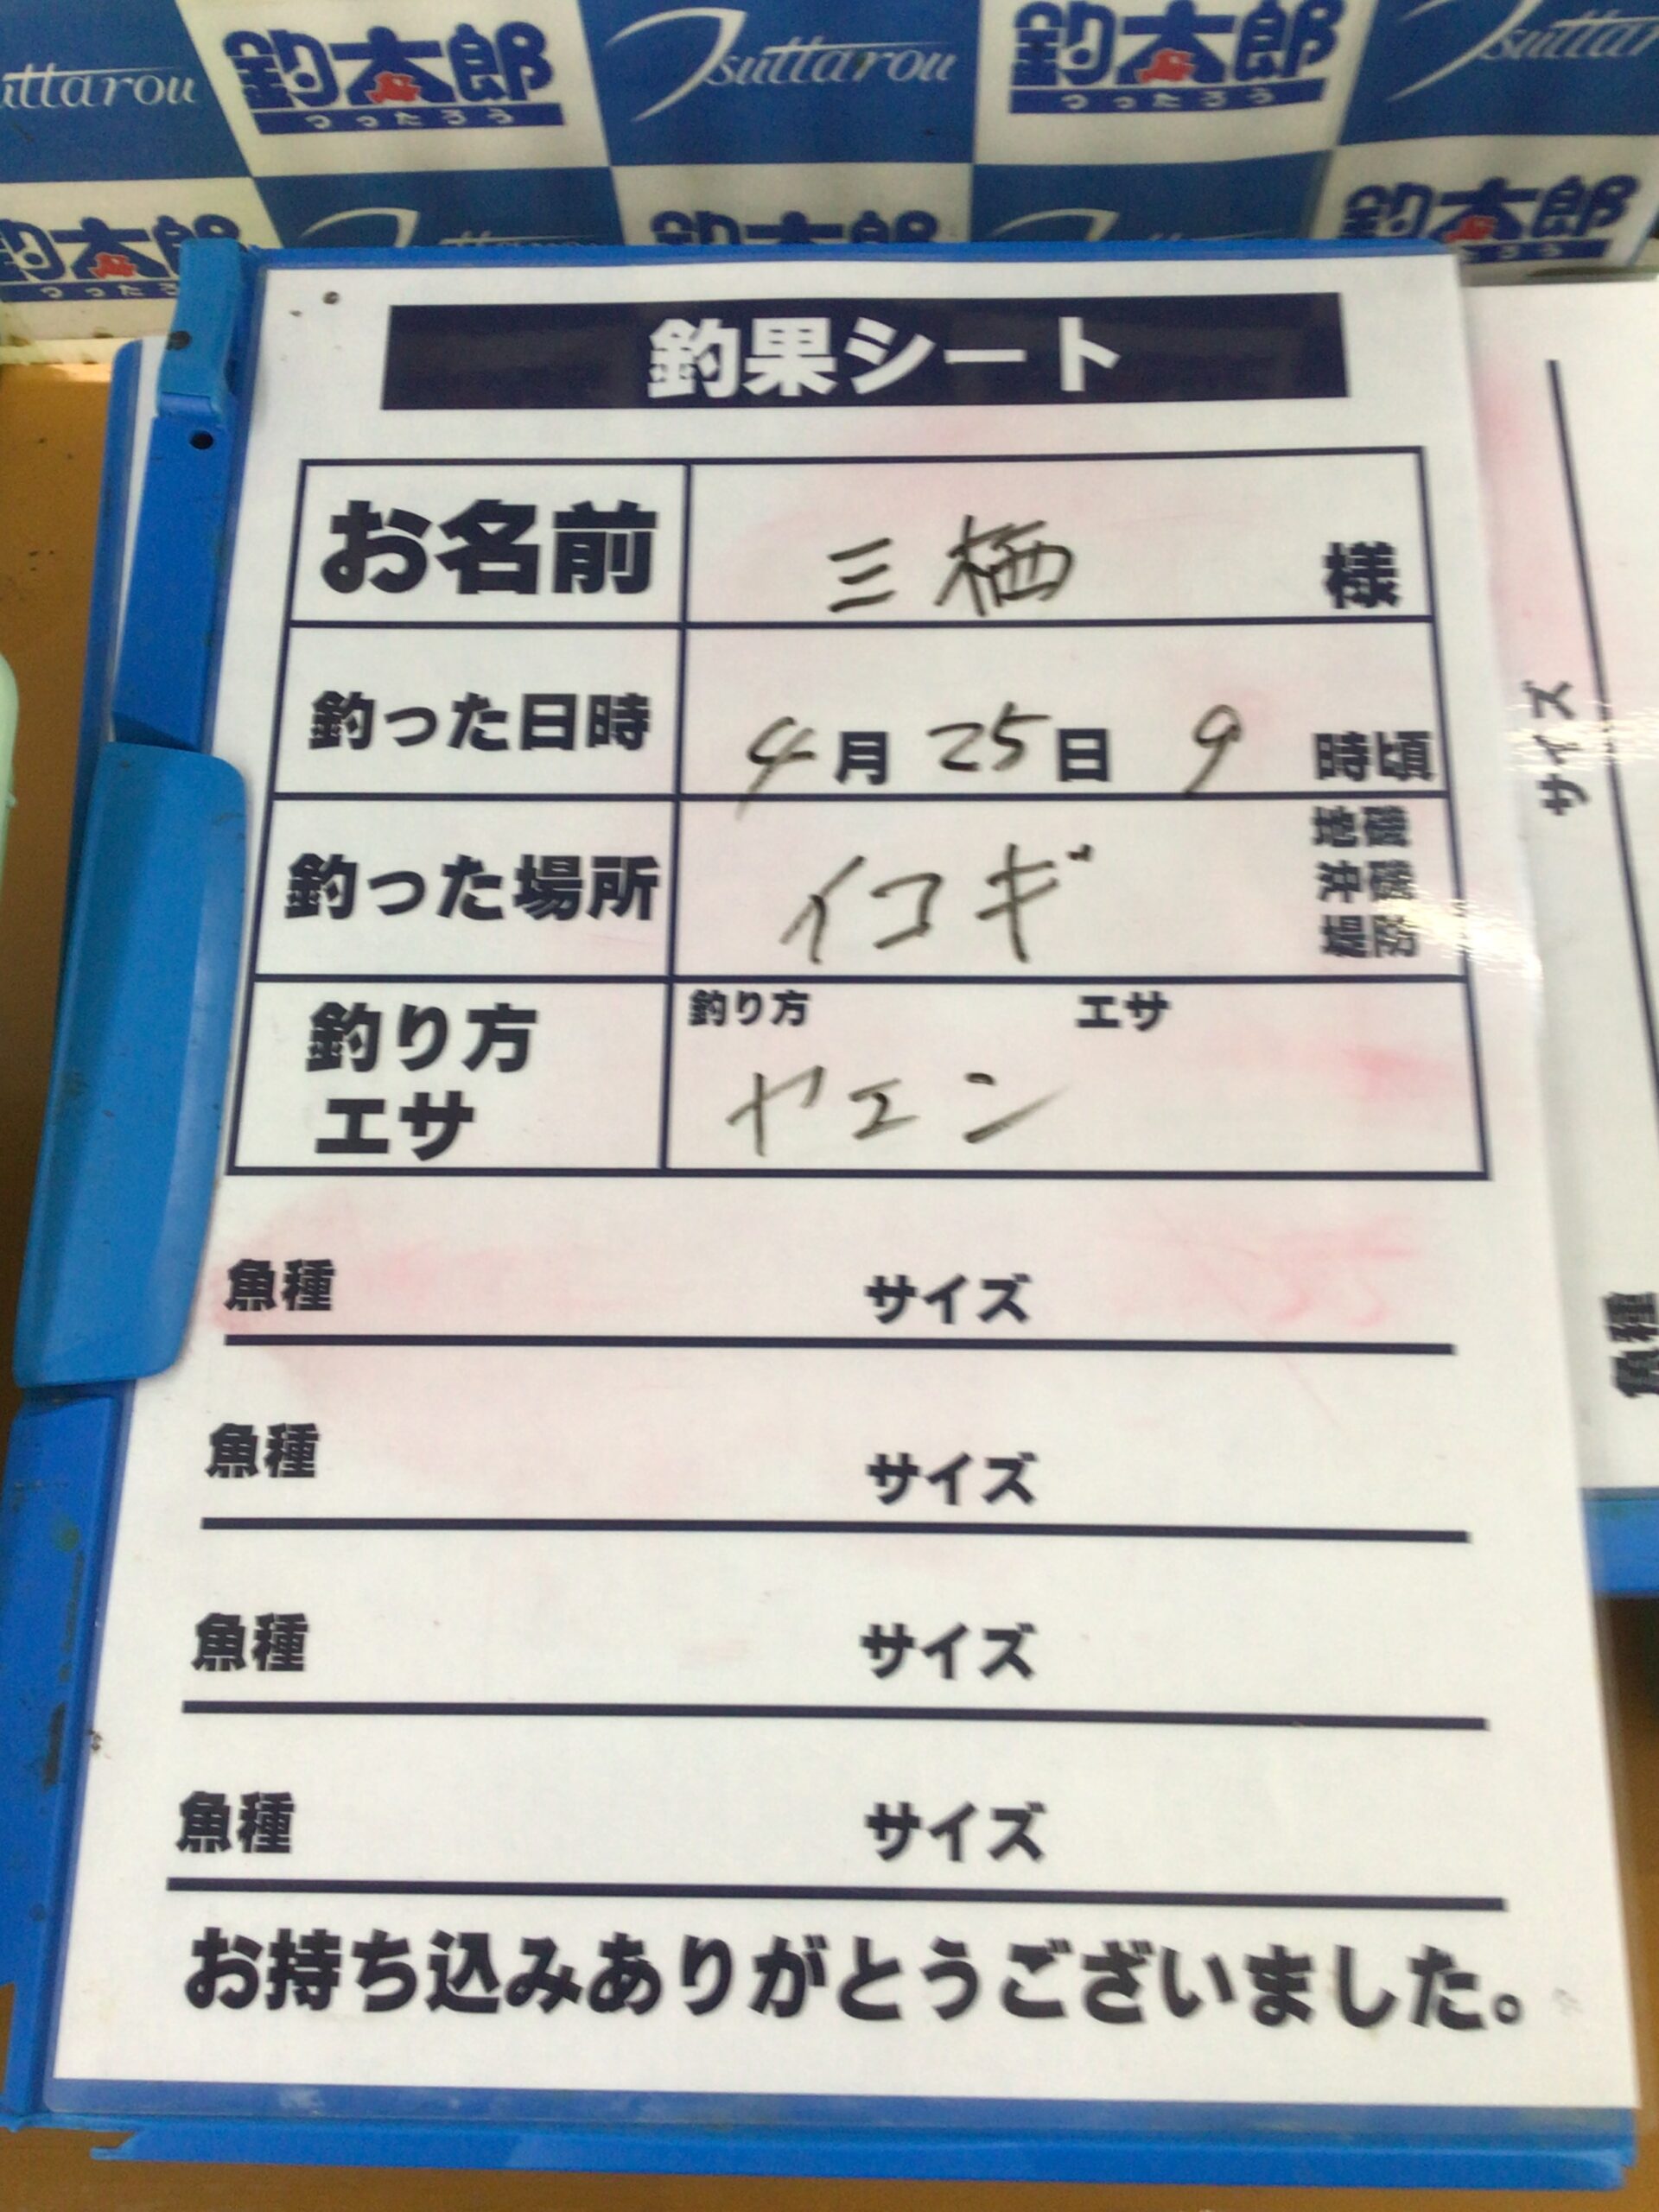 uttarou 釣太郎 Tsuttarou 釣太郎 Tsuttar
つったろう つったろう
釣太郎 釣太郎 釣太郎
つったろ つったろう
釣果シート
お名前 三栖 様
釣った日時 4月25日 9時頃
釣った場所 イコギ 地磯
沖磯
堤防
釣り方 エサ
釣り方
エサ ヤエン
魚種 サイズ
魚種 サイズ
魚種 サイズ
魚種 サイズ
お持ち込みありがとうございました。
サイズ
魚種